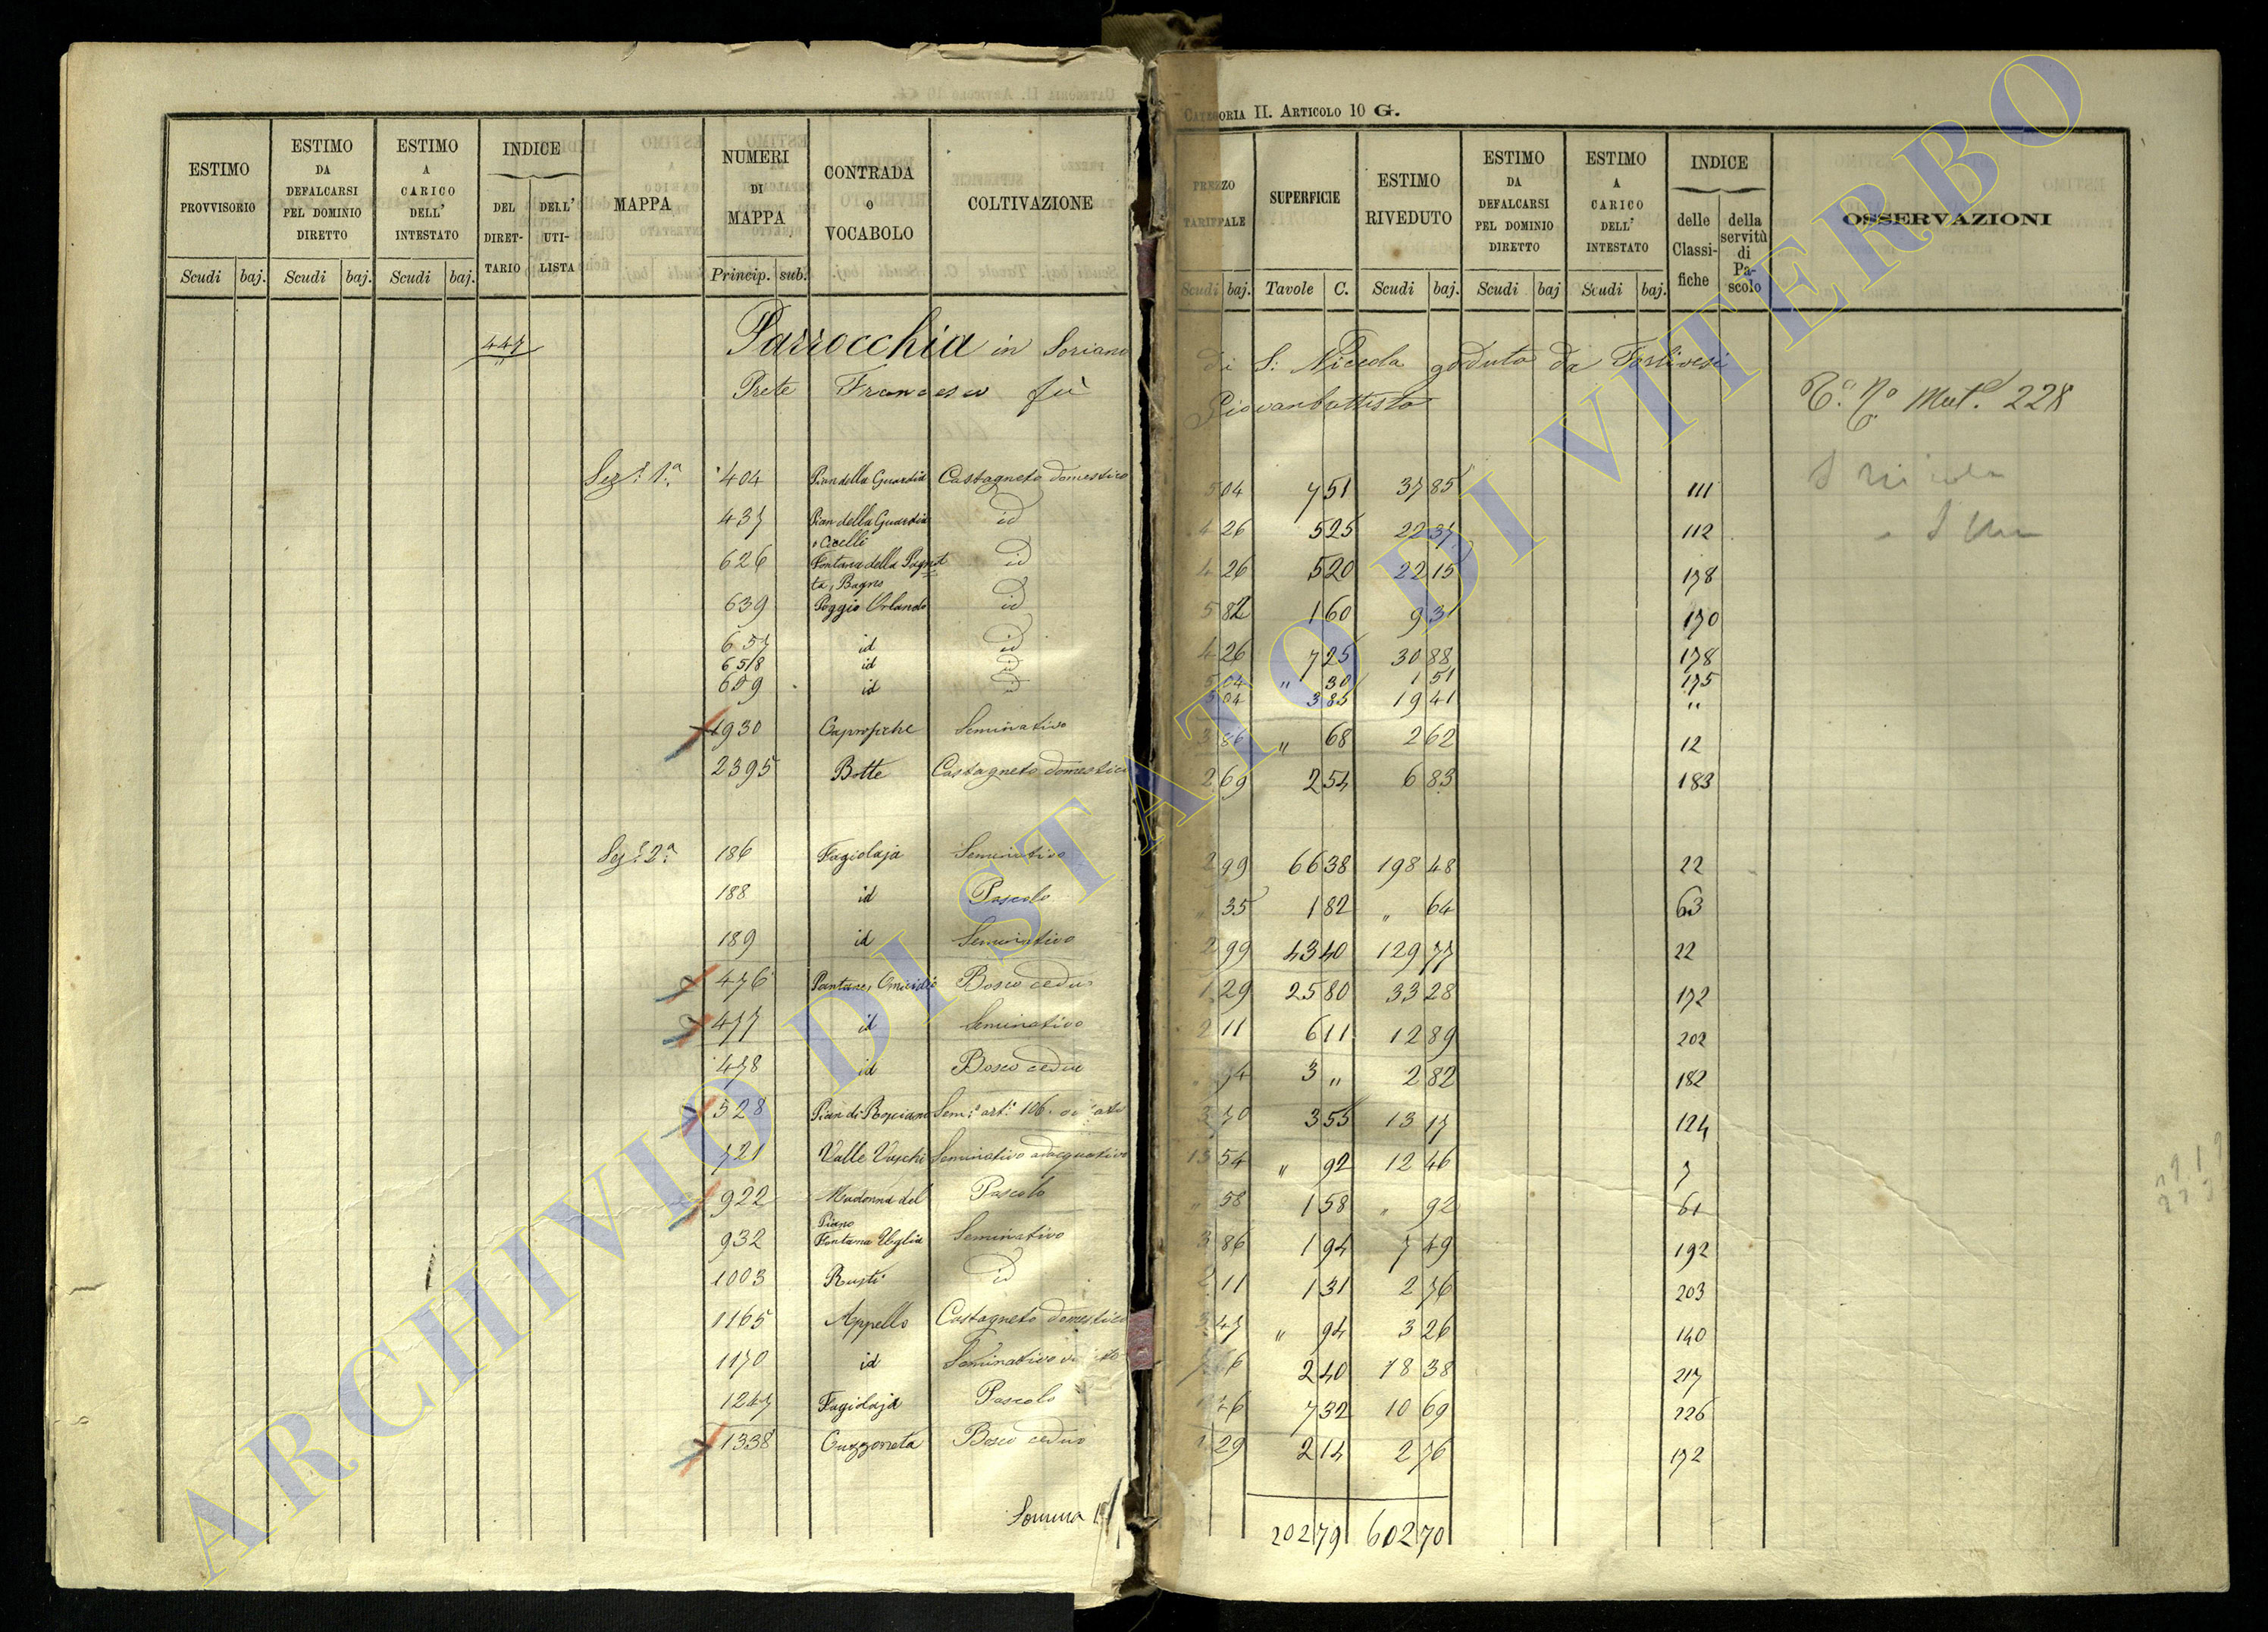 CATEGORIA II. ARTICOLO 10 G.
ESTIMO PROVVISORIO Scudi baj.
ESTIMO DA DEFALCARSI PEL DOMINIO DIRETTO Scudi baj.
ESTIMO A CARICO DELL' INTESTATO Scudi baj.
INDICE DEL DIRETTARIO DELL' UTILISTA
MAPPA
NUMERI DI MAPPA Princip. sub.
CONTRADA O VOCABOLO
COLTIVAZIONE
PREZZO TARIFFALE Scudi baj.
SUPERFICIE Tavole C.
ESTIMO RIVEDUTO Scudi baj.
ESTIMO DA DEFALCARSI PEL DOMINIO DIRETTO Scudi baj
ESTIMO A CARICO DELL' INTESTATO Scudi baj.
INDICE delle Classifiche della servitù di Pascolo
OSSERVAZIONI
447 Parrocchia in Soriano di S: Niccola goduta da Forlivesi
Prete Francesco fù Giovanbattista
Mut. 228
Sez. 1a 404 Pian della Guardia Castagneto domestico 5 04 7 51 37 85 111
437 Pian della Guardia o Cicelli id 4 26 5 25 22 37 112
626 Fontana della Pagnotta, Bagno id 4 26 5 20 22 15 178
639 Poggio Orlando id 5 82 1 60 9 31 170
657 id id 4 26 7 25 30 88 178
658 id id 5 04 " 30 1 51 175
659 id id 5 04 3 85 19 41 "
1930 Seminativo 3 86 " 68 2 62 12
2395 Botte Castagneto domestico 2 69 2 54 6 83 183
Sez. 2a 186 Fagiolaja Seminativo 2 99 66 38 198 48 22
188 id Pascolo " 35 1 82 " 64 63
189 id Seminativo 2 99 43 40 129 77 22
476 Pantane, Bosco ceduo 1 29 25 80 33 28 172
477 id Seminativo 2 11 6 11 12 89 202
478 id Bosco ceduo 94 3 " 2 82 182
528 Pian di 3 70 3 55 13 17 124
721 Valle Seminativo adacquativo 13 54 " 92 12 46 7
922 Madonna del Piano Pascolo " 58 1 58 " 92 61
932 Fontana Seminativo 3 86 1 94 7 49 192
1003 Rusti id 2 11 1 31 2 76 203
1165 Appello Castagneto domestico 3 47 " 94 3 26 140
1170 id Seminativo 2 40 18 38 217
1247 Fagiolaja Pascolo 1 46 7 32 10 69 226
1338 Cuzzoneta Bosco ceduo 1 29 2 14 2 76 172
Somma 202 79 602 70
ARCHIVIO DI STATO DI VITERBO